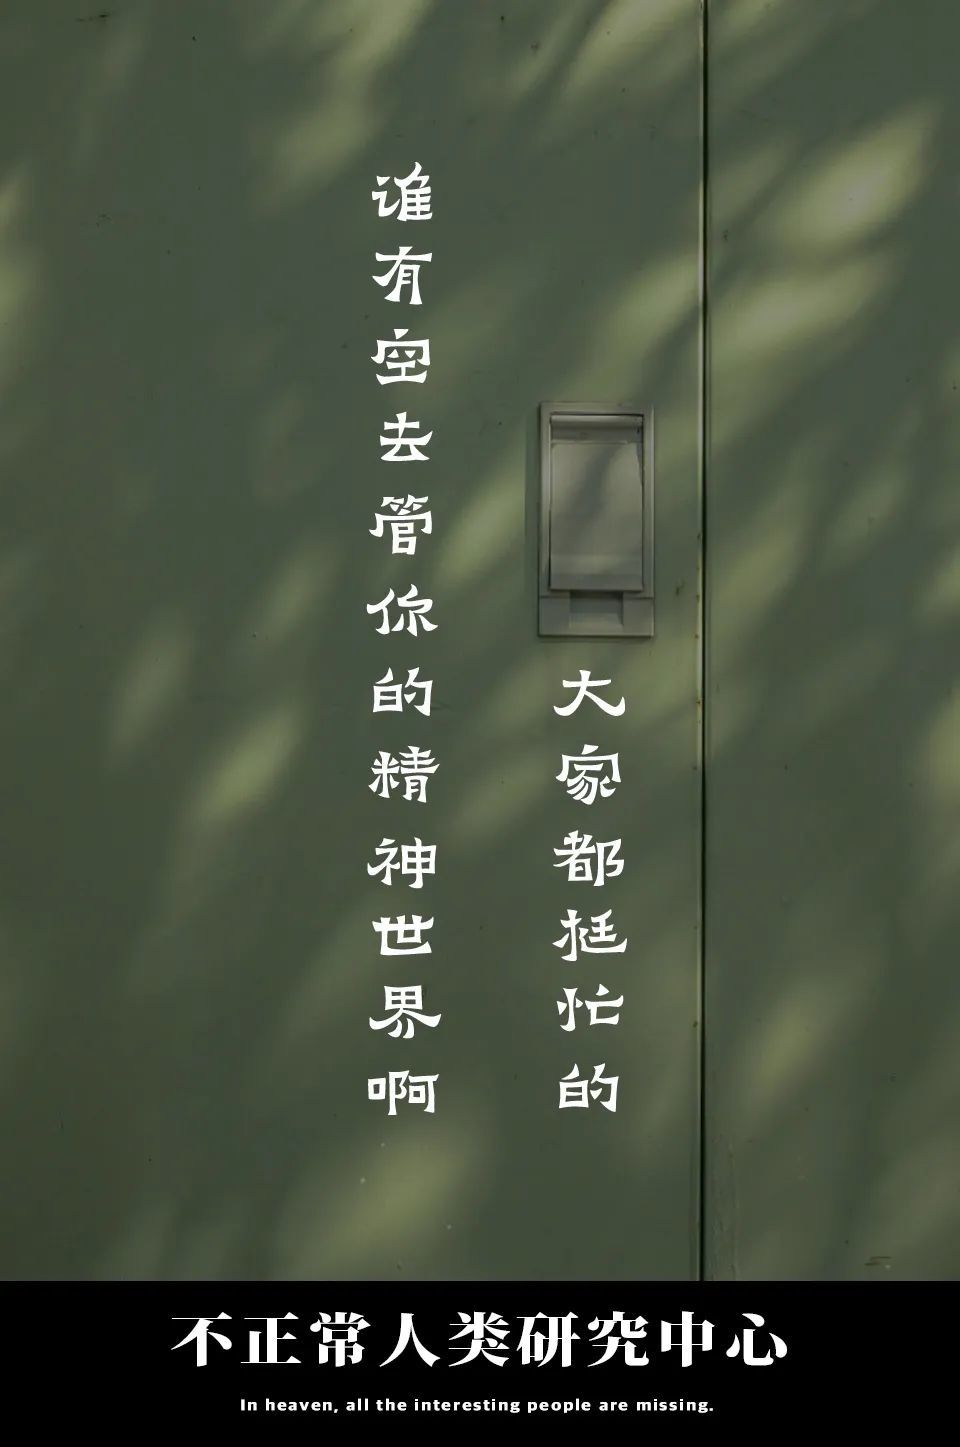 大家都挺忙的
谁有空去管你的精神世界啊
不正常人类研究中心
In heaven, all the interesting people are missing.